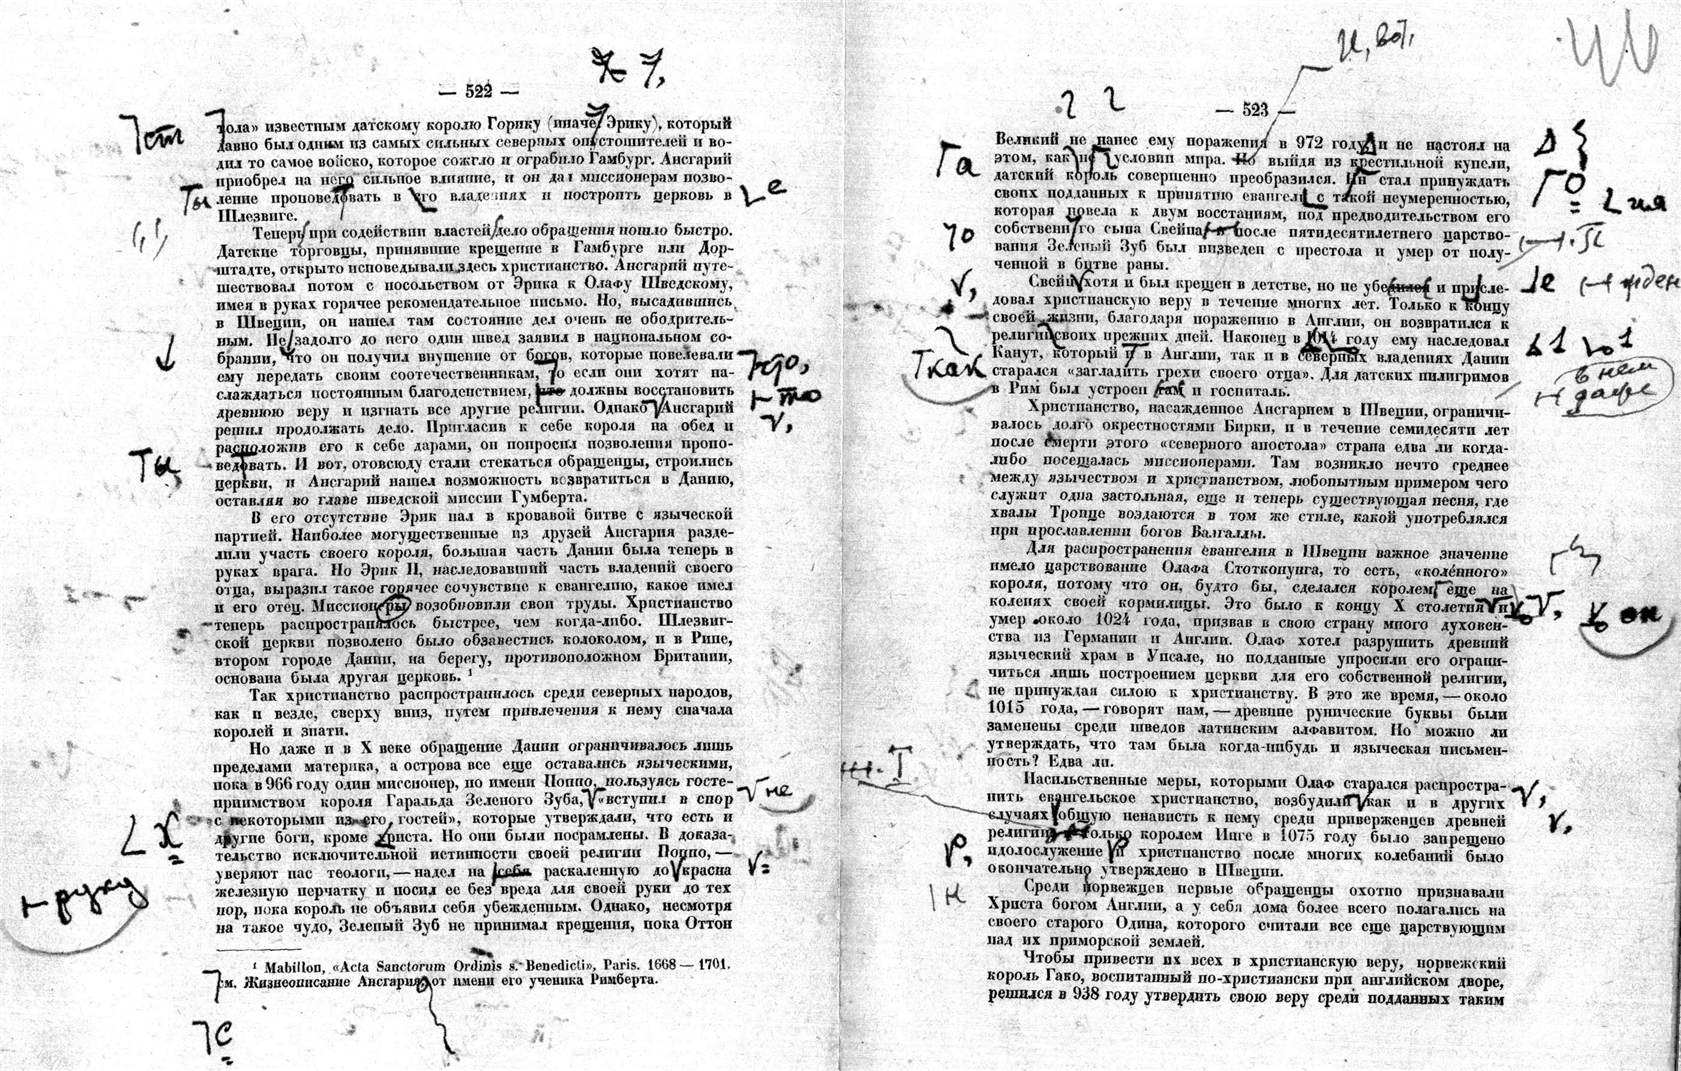 — 522 —
тола» известным датскому королю Горику (иначе Эрику), который
давно был одним из самых сильных северных опустошителей и во-
дил то самое войско, которое сожгло и ограбило Гамбург. Ансгарий
приобрел на него сильное влияние, и он дал миссионерам позво-
ление проповедовать в его владениях и построить церковь в
Шлезвиге.
Теперь при содействии властей дело обращения пошло быстро.
Датские торговцы, принявшие крещение в Гамбурге или Дор-
штадте, открыто исповедывали здесь христианство. Ансгарий путе-
шествовал потом с посольством от Эрика к Олафу Шведскому,
имея в руках горячее рекомендательное письмо. Но, высадившись
в Швеции, он нашел там состояние дел очень не ободритель-
ным. Не задолго до него один швед заявил в национальном со-
брании, что он получил внушение от богов, которые повелевали
ему передать своим соотечественникам, то если они хотят на-
слаждаться постоянным благоденствием, что должны восстановить
древнюю веру и изгнать все другие религии. Однако Ансгарий
решил продолжать дело. Пригласив к себе короля на обед и
расположив его к себе дарами, он попросил позволения пропо-
ведовать. И вот, отовсюду стали стекаться обращенцы, строились
церкви, и Ансгарий нашел возможность возвратиться в Данию,
оставляя во главе шведской миссии Гумберта.
В его отсутствие Эрик пал в кровавой битве с языческой
партией. Наиболее могущественные из друзей Ансгария разде-
лили участь своего короля, большая часть Дании была теперь в
руках врага. Но Эрик II, наследовавший часть владений своего
отца, выразил такое горячее сочувствие к евангелию, какое имел
и его отец. Миссионеры возобновили свои труды. Христианство
теперь распространялось быстрее, чем когда-либо. Шлезвиг-
ской церкви позволено было обзавестись колоколом, и в Рипе,
втором городе Дании, на берегу, противоположном Британии,
основана была другая церковь. ¹
Так христианство распространилось среди северных народов,
как и везде, сверху вниз, путем привлечения к нему сначала
королей и знати.
Но даже и в X веке обращение Дании ограничивалось лишь
пределами материка, а острова все еще оставались языческими,
пока в 966 году один миссионер, по имени Поппо, пользуясь госте-
приимством короля Гаральда Зеленого Зуба, «вступил в спор
с некоторыми из его гостей», которые утверждали, что есть и
другие боги, кроме христа. Но они были посрамлены. В доказа-
тельство исключительной истинности своей религии Поппо, —
уверяют нас теологи, — надел на себя раскаленную до красна
железную перчатку и носил ее без вреда для своей руки до тех
пор, пока король не объявил себя убежденным. Однако, несмотря
на такое чудо, Зеленый Зуб не принимал крещения, пока Оттон
¹ Mabillon, «Acta Sanctorum Ordinis s. Benedicti», Paris. 1668 — 1701.
см. Жизнеописание Ансгария, от имени его ученика Римберта.
ст
ты
е
что,
то
ты
не
Х
руку
с
— 523 —
Великий не нанес ему поражения в 972 году и не настоял на
этом, как на условии мира. Но выйдя из крестильной купели,
датский король совершенно преобразился. Он стал принуждать
своих подданных к принятию евангелия с такой неумеренностью,
которая повела к двум восстаниям, под предводительством его
собственного сына Свейна, и после пятидесятилетнего царство-
вания Зеленый Зуб был низведен с престола и умер от полу-
ченной в битве раны.
Свейн хотя и был крещен в детстве, но не убедился и пресле-
довал христианскую веру в течение многих лет. Только к концу
своей жизни, благодаря поражению в Англии, он возвратился к
религии своих прежних дней. Наконец в 1014 году ему наследовал
Канут, который и в Англии, так и в северных владениях Дании
старался «загладить грехи своего отца». Для датских пилигримов
в Рим был устроен там и госпиталь.
Христианство, насажденное Ансгарием в Швеции, ограничи-
валось долго окрестностями Бирки, и в течение семидесяти лет
после смерти этого «северного апостола» страна едва ли когда-
либо посещалась миссионерами. Там возникло нечто среднее
между язычеством и христианством, любопытным примером чего
служит одна застольная, еще и теперь существующая песня, где
хвалы Троице воздаются в том же стиле, какой употреблялся
при прославлении богов Валгаллы.
Для распространения евангелия в Швеции важное значение
имело царствование Олафа Стотконунга, то есть, «коле́нного»
короля, потому что он, будто бы, сделался королем еще на
коленях своей кормилицы. Это было к концу X столетия и
умер около 1024 года, призвав в свою страну много духовен-
ства из Германии и Англии. Олаф хотел разрушить древний
языческий храм в Упсале, но подданные упросили его ограни-
читься лишь построением церкви для его собственной религии,
не принуждая силою к христианству. В это же время, — около
1015 года, — говорят нам, — древние рунические буквы были
заменены среди шведов латинским алфавитом. Но можно ли
утверждать, что там была когда-нибудь и языческая письмен-
ность? Едва ли.
Насильственные меры, которыми Олаф старался распростра-
нить евангельское христианство, возбудили как и в других
случаях общую ненависть к нему среди приверженцев древней
религии, и только королем Инге в 1075 году было запрещено
идолослужение и христианство после многих колебаний было
окончательно утверждено в Швеции.
Среди норвежцев первые обращенцы охотно признавали
Христа богом Англии, а у себя дома более всего полагались на
своего старого Одина, которого считали все еще царствующим
над их приморской землей.
Чтобы привести их всех в христианскую веру, норвежский
король Гако, воспитанный по-христиански при английском дворе,
решился в 938 году утвердить свою веру среди подданных таким
и, вот,
на
о
ия
о
П
е
жден
1
1
как
в нем
даже
он
Т
н